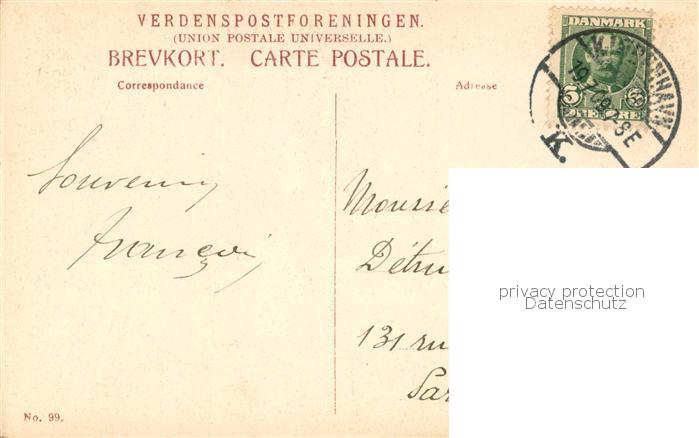 VERDENSPOSTFORENINGEN.
(UNION POSTALE UNIVERSELLE.)
BREVKORT. CARTE POSTALE.
Correspondance
Adresse
DANMARK
5 5
ØRE
K.
Souvenir
Monsie
Détru
131 ru
Par
privacy protection
Datenschutz
No. 99.